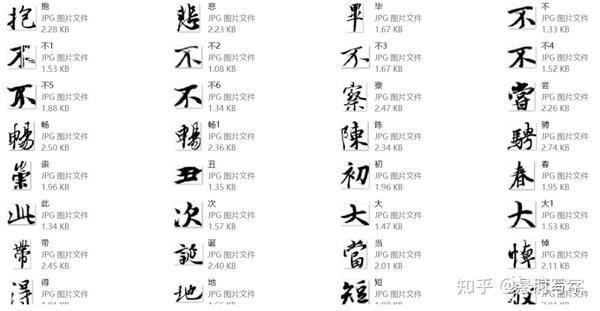 抱 抱
JPG 图片文件
2.28 KB
悲 悲
JPG 图片文件
2.23 KB
畢 毕
JPG 图片文件
1.67 KB
不 不
JPG 图片文件
1.33 KB
不 不1
JPG 图片文件
1.53 KB
不 不2
JPG 图片文件
1.08 KB
不 不3
JPG 图片文件
1.67 KB
不 不4
JPG 图片文件
1.52 KB
不 不5
JPG 图片文件
1.88 KB
不 不6
JPG 图片文件
1.34 KB
察 察
JPG 图片文件
2.47 KB
嘗 尝
JPG 图片文件
2.26 KB
暢 畅
JPG 图片文件
2.50 KB
暢 畅1
JPG 图片文件
2.36 KB
陳 陈
JPG 图片文件
2.34 KB
騁 骋
JPG 图片文件
2.74 KB
崇 崇
JPG 图片文件
1.96 KB
丑 丑
JPG 图片文件
1.35 KB
初 初
JPG 图片文件
1.96 KB
春 春
JPG 图片文件
1.95 KB
此 此
JPG 图片文件
1.34 KB
次 次
JPG 图片文件
1.57 KB
大 大
JPG 图片文件
1.47 KB
大 大1
JPG 图片文件
1.53 KB
帶 带
JPG 图片文件
2.45 KB
誕 诞
JPG 图片文件
2.40 KB
當 当
JPG 图片文件
2.01 KB
悼 悼
JPG 图片文件
2.11 KB
得 得
JPG 图片文件
地 地
JPG 图片文件
短 短
JPG 图片文件
知乎